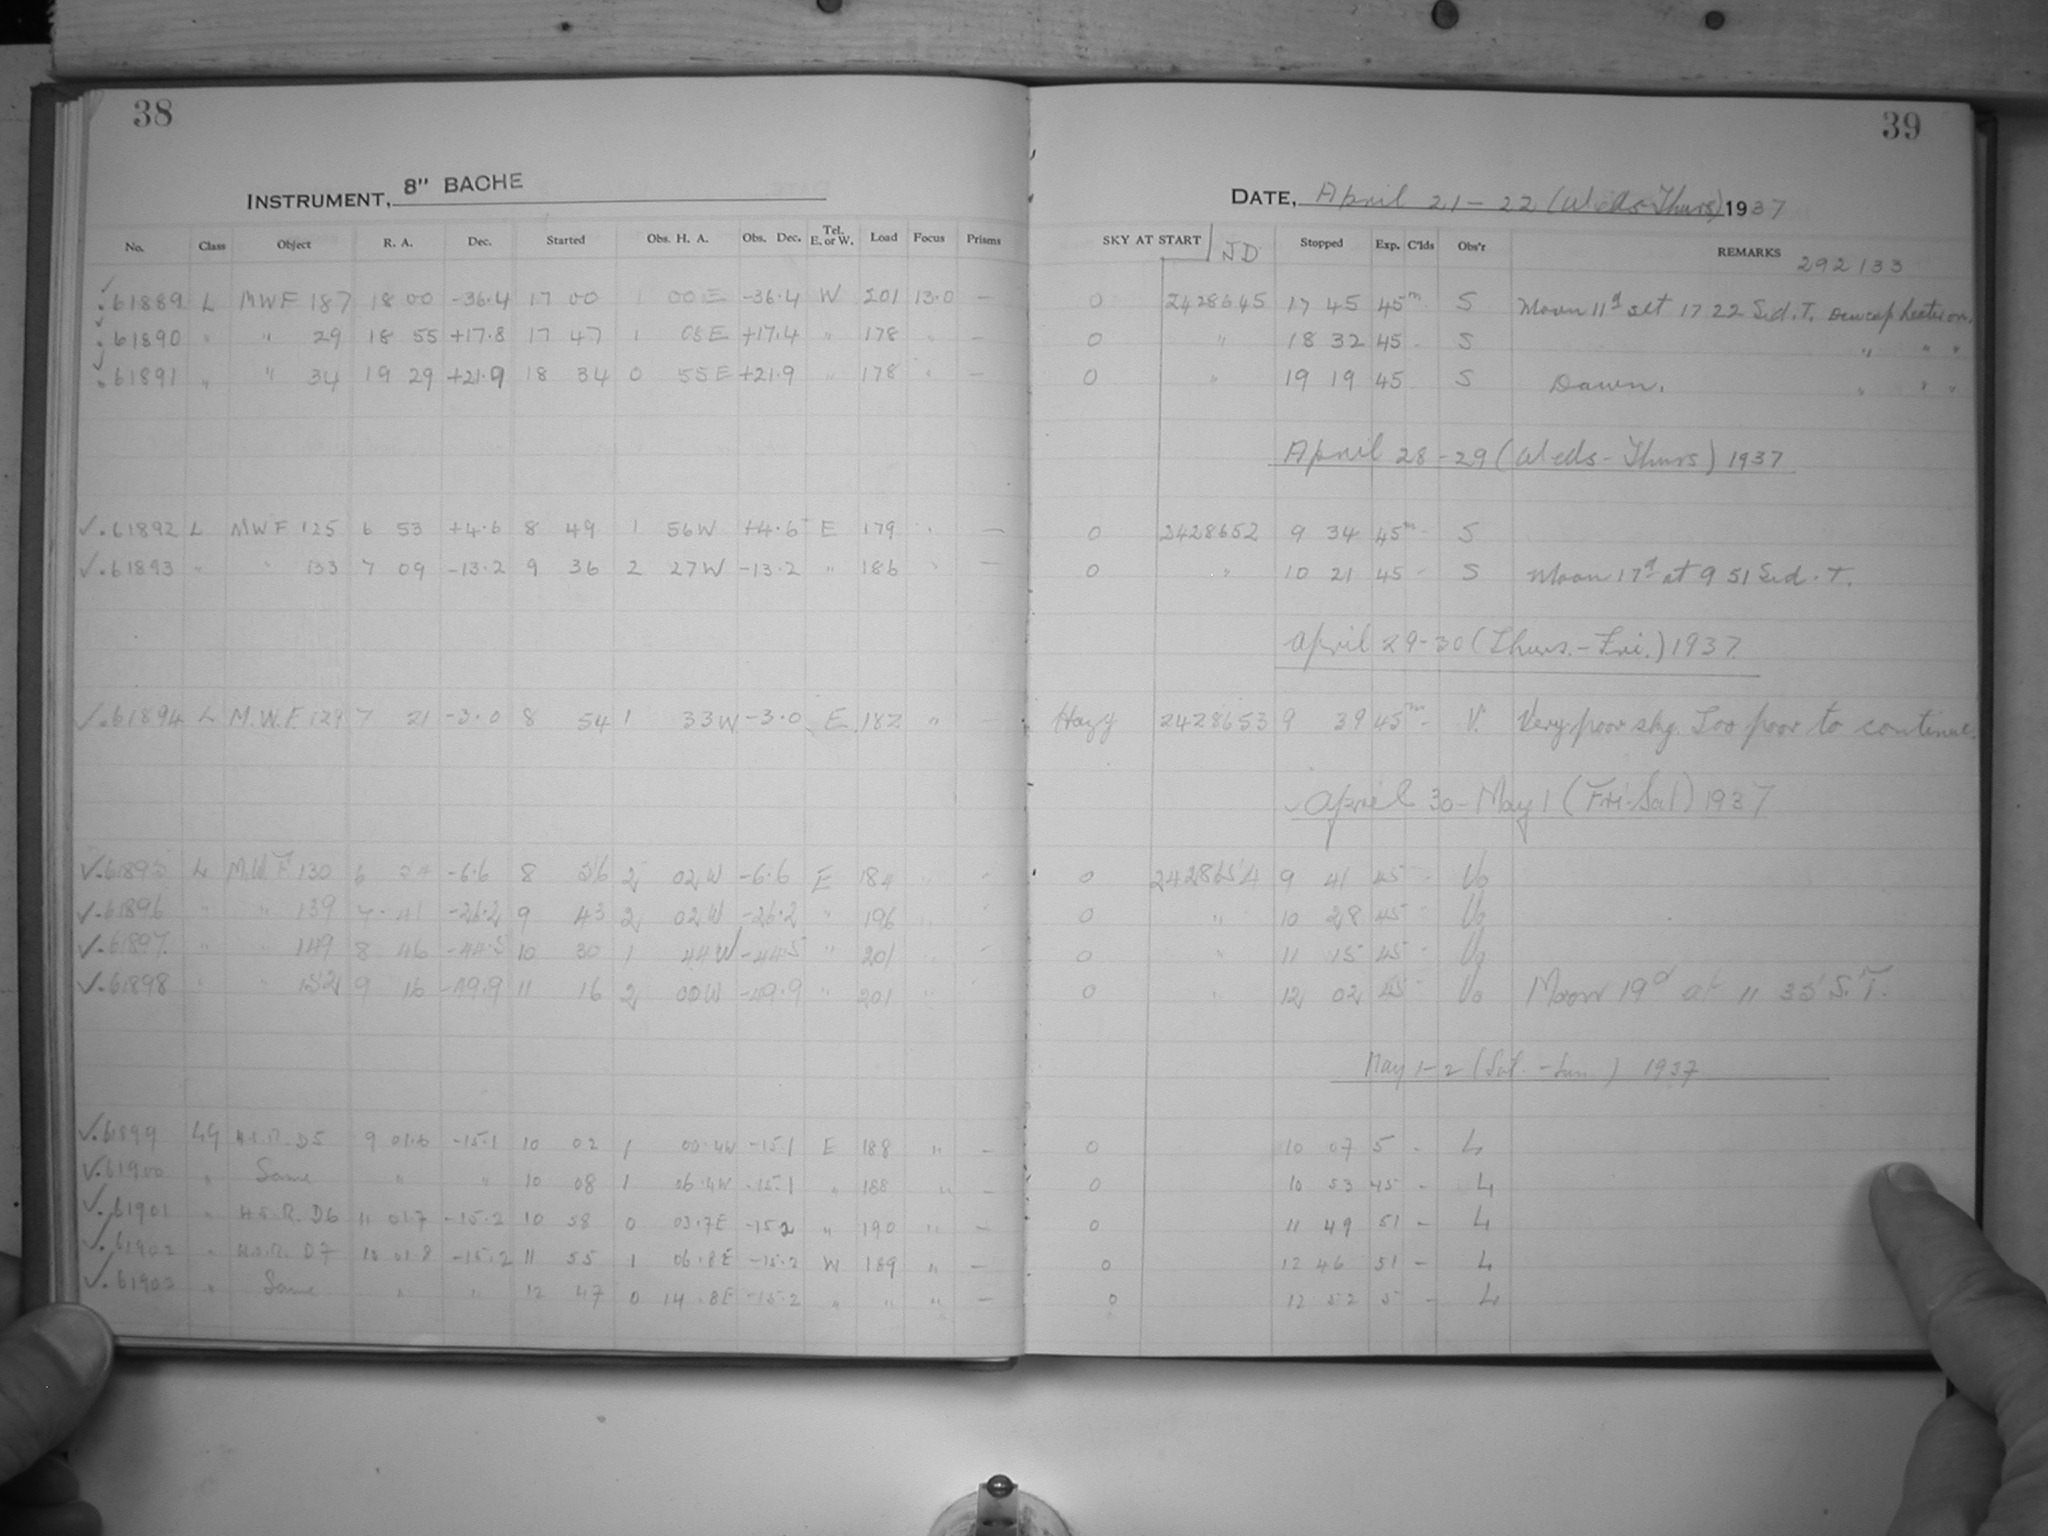 38
INSTRUMENT, 8" BACHE
No. Class Object R. A. Dec. Started Obs. H. A. Obs. Dec. Tel. E. or W. Load Focus Prisms
✓ .61889 L MWF 187 18 00 -36.4 17 00 1 00 E -36.4 W 201 13.0 —
✓ .61890 " " 29 18 55 +17.8 17 47 1 08 E +17.4 " 178 " —
✓ .61891 " " 34 19 29 +21.9 18 34 0 55 E +21.9 " 178 " —
✓ .61892 L MWF 125 6 53 +4.6 8 49 1 56 W +4.6 E 179 " —
✓ .61893 " " 133 7 09 -13.2 9 36 2 27 W -13.2 " 186 " —
✓ .61894 L M.W.F. 129 7 21 -3.0 8 54 1 33 W -3.0 E. 182 " —
✓ .61895 L M.W.F 130 6 -6.6 8 56 2 02 W -6.6 E 184 " "
✓ .61896 " " 139 7 41 -26.2 9 43 2 02 W -26.2 " 196 " "
✓ .61897 " " 149 8 46 -44.5 10 30 1 44 W -44.5 " 201 " "
✓ .61898 " " 152 9 16 -49.9 11 16 2 00 W -49.9 " 201 " "
✓ .61899 LG H.S.R. D5 9 01.6 -15.1 10 02 1 00.4W -15.1 E 188 " —
✓ .61900 " Same " " 10 08 1 06.4W -15.1 " 188 " —
✓ .61901 " H.S.R. D6 11 01.7 -15.2 10 58 0 03.7E -15.2 " 190 " —
✓ .61902 " H.S.R. D7 13 01.8 -15.2 11 55 1 06.8E -15.2 W 189 " —
✓ .61903 " Same " " 12 47 0 14.8E -15.2 " " " —
39
DATE, April 21-22 (Weds-Thurs) 1937
SKY AT START JD Stopped Exp. C'lds Obs'r REMARKS 292133
0 2428645 17 45 45m - S Moon 11d set 17 22 Sid. T. Dewcap heater on.
0 " 18 32 45 - S " " "
0 " 19 19 45 S Dawn. " " "
April 28-29 (Weds-Thurs) 1937
0 2428652 9 34 45m - S
0 " 10 21 45 - S Moon 17d at 9 51 Sid. T.
April 29-30 (Thurs.-Fri.) 1937
Hazy 2428653 9 39 45m - V. Very poor sky. Too poor to continue.
April 30-May 1 (Fri-Sat) 1937
0 2428654 9 41 45 - Vo
0 " 10 28 45 - Vo
0 " 11 15 45 - Vo
0 " 12 02 45 - Vo Moon 19d at 11 35 S.T.
May 1-2 (Sat.-Sun.) 1937
0 10 07 5 - L
0 10 53 45 - L
0 11 49 51 - L
0 12 46 51 - L
0 12 52 5 - L